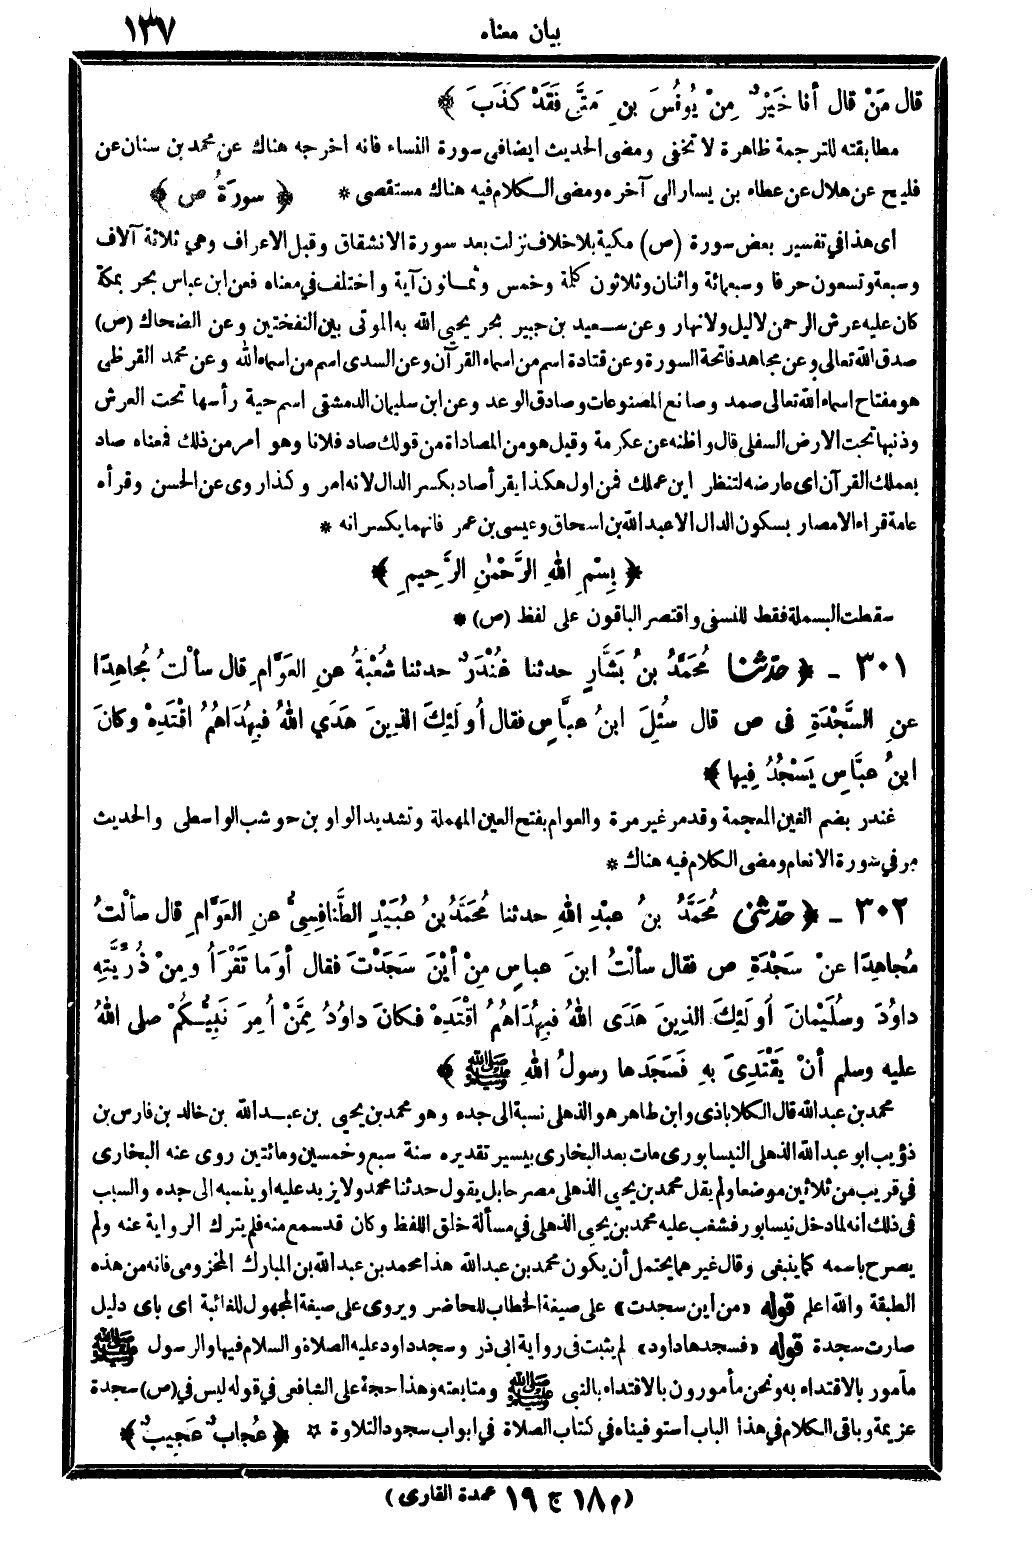 بيان معناه ١٣٧
قال مَنْ قال أنا خَيْرٌ مِنْ يُونُسَ بنِ مَتَّى فَقَدْ كَذَبَ ﴾
مطابقته للترجمة ظاهرة لا تخفى ومضى الحديث ايضا فى سورة النساء فانه اخرجه هناك عن محمد بن سنان عن
فليح عن هلال عن عطاء بن يسار الى آخره ومضى الكلام فيه هناك مستقصى * ﴿ سورةُ ص ﴾
اى هذا فى تفسير بعض سورة (ص) مكية بلاخلاف نزلت بعد سورة الانشقاق وقبل الاعراف وهي ثلاثة آلاف
وسبعة وتسعون حرفا وسبعمائة واثنان وثلاثون كلمة وخمس وثمانون آية واختلف فى معناه فعن ابن عباس بحر بمكة
كان عليه عرش الرحمن لاليل ولانهار وعن سعيد بن جبير بحر يحيي الله به الموتى بين النفختين وعن الضحاك (ص)
صدق الله تعالى وعن مجاهد فاتحة السورة وعن قتادة اسم من اسماء القرآن وعن السدى اسم من اسماء الله وعن محمد القرظى
هو مفتاح اسماء الله تعالى صمد وصانع المصنوعات وصادق الوعد وعن ابن سليمان الدمشقى اسم حية رأسها تحت العرش
وذنبها تحت الارض السفلى قال واظنه عن عكرمة وقيل هو من المصاداة من قولك صاد فلانا وهو امر من ذلك فمعناه صاد
بعملك القرآن اى عارضه لتنظر اين عملك فمن اول هكذا يقرأ صاد بكسر الدال لانه امر وكذا روى عن الحسن وقرأه
عامة قراء الامصار بسكون الدال الا عبد الله بن اسحاق وعيسى بن عمر فانهما يكسرانه *
﴿ بِسْمِ اللهِ الرَّحْمٰنِ الرَّحِيمِ ﴾
سقطت البسملة فقط للنسفى واقتصر الباقون على لفظ (ص) *
٣٠١ - ﴿ حدّثنا مُحَمَّدُ بنُ بَشَّارٍ حدثنا غُنْدَرٌ حدثنا شُعْبَةُ عنِ العَوَّامِ قال سألْتُ مُجاهِدًا
عنِ السَّجْدَةِ فى ص قال سُئِلَ ابنُ عبَّاسٍ فقال أُولَئِكَ الذِينَ هَدَي اللهُ فَبِهُدَاهُمُ اقْتَدِهْ وكانَ
ابنُ عبَّاسٍ يَسْجُدُ فِيها ﴾
غندر بضم الغين المعجمة وقد مر غير مرة والعوام بفتح العين المهملة وتشديد الواو بن حوشب الواسطى والحديث
مر فى سورة الانعام ومضى الكلام فيه هناك *
٣٠٢ - ﴿ حدّثنى مُحَمَّدُ بنُ عبْدِ اللهِ حدثنا مُحَمَّدُ بنُ عُبَيْدٍ الطَّنافِسِىُّ عنِ العَوَّامِ قال سألْتُ
مُجاهِدًا عنْ سَجْدَةِ ص فقال سألْتُ ابنَ عباسٍ مِنْ أيْنَ سَجَدْتَ فقال أوَما تَقْرَأُ ومِنْ ذُرِّيَّتِهِ
داوُدَ وسُلَيْمانَ أُولَئِكَ الذِينَ هَدَى اللهُ فَبِهُدَاهُمُ اقْتَدِهْ فَكانَ داوُدُ مِمَّنْ أُمِرَ نَبِيُّكُمْ صلى اللهُ
عليه وسلم أنْ يَقْتَدِىَ بِهِ فَسَجَدَها رسولُ اللهِ ﷺ ﴾
محمد بن عبد الله قال الكلاباذى وابن طاهر هو الذهلى نسبة الى جده وهو محمد بن يحيى بن عبد الله بن خالد بن فارس بن
ذؤيب ابو عبد الله الذهلى النيسابورى مات بعد البخارى بيسير تقديره سنة سبع وخمسين ومائتين روى عنه البخارى
فى قريب من ثلاثين موضعا ولم يقل محمد بن يحيي الذهلى مصرحا بل يقول حدثنا محمد ولا يزيد عليه او ينسبه الى جده والسبب
فى ذلك أنه لما دخل نيسابور فشغب عليه محمد بن يحيي الذهلى فى مسألة خلق اللفظ وكان قد سمع منه فلم يترك الرواية عنه ولم
يصرح باسمه كما ينبغى وقال غيرهما يحتمل أن يكون محمد بن عبد الله هذا محمد بن عبد الله بن المبارك المخزومى فانه من هذه
الطبقة والله اعلم قوله «من اين سجدت» على صيغة الخطاب للحاضر ويروى على صيغة المجهول للغائبة اى باى دليل
صارت سجدة قوله «فسجدها داود» لم يثبت فى رواية ابى ذر وسجد داود عليه الصلاة والسلام فيها والرسول ﷺ
مأمور بالاقتداء به ونحن مأمورون بالاقتداء بالنبى ﷺ ومتابعته وهذا حجة على الشافعى فى قوله ليس فى (ص) سجدة
عزيمة وباقى الكلام فى هذا الباب استوفيناه فى كتاب الصلاة فى ابواب سجود التلاوة * ﴿ عُجابٌ عَجِيبٌ ﴾
(م ١٨ ج ١٩ عمدة القارى)